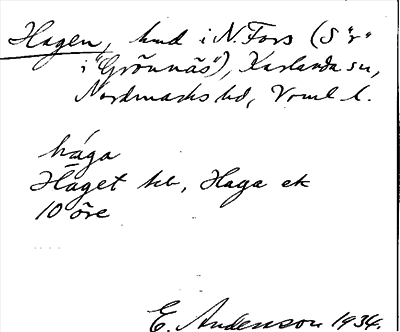 Hagen, hmd i N. Fors (S "r"
i "Grönnäs"), Karlanda sn,
Nordmarks hd, Vrml l.
håga
Haget hb, Haga ek
10 öre
E. Andenson 1934.